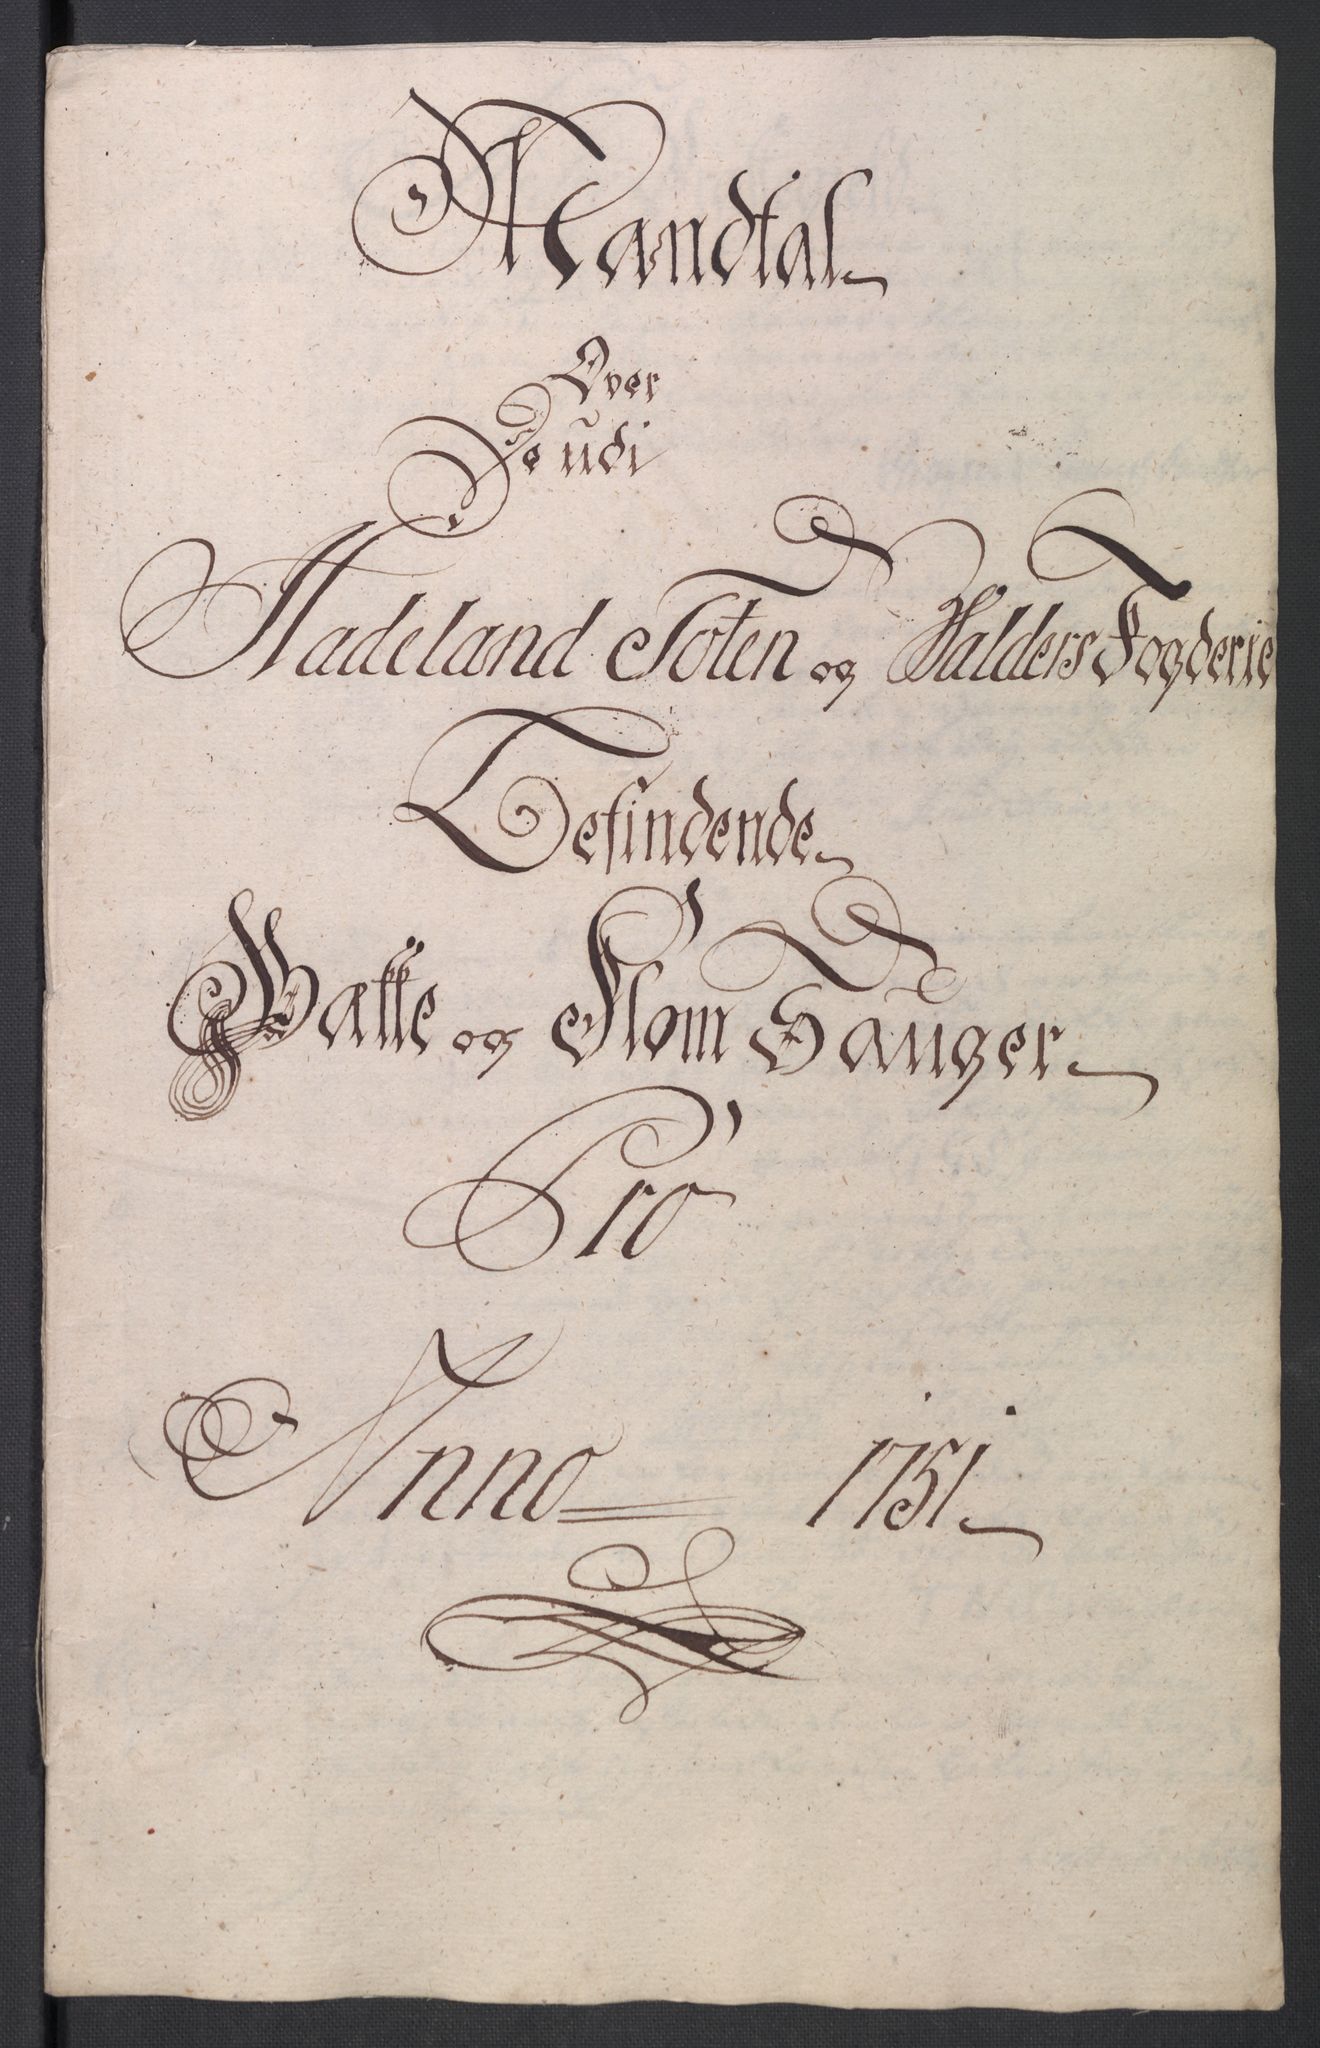 Mandtal
Over
De udi
Hadeland Toten og Walders Fogderie
Befindende
Bække og Flom Sauger
Pro
Anno 1751